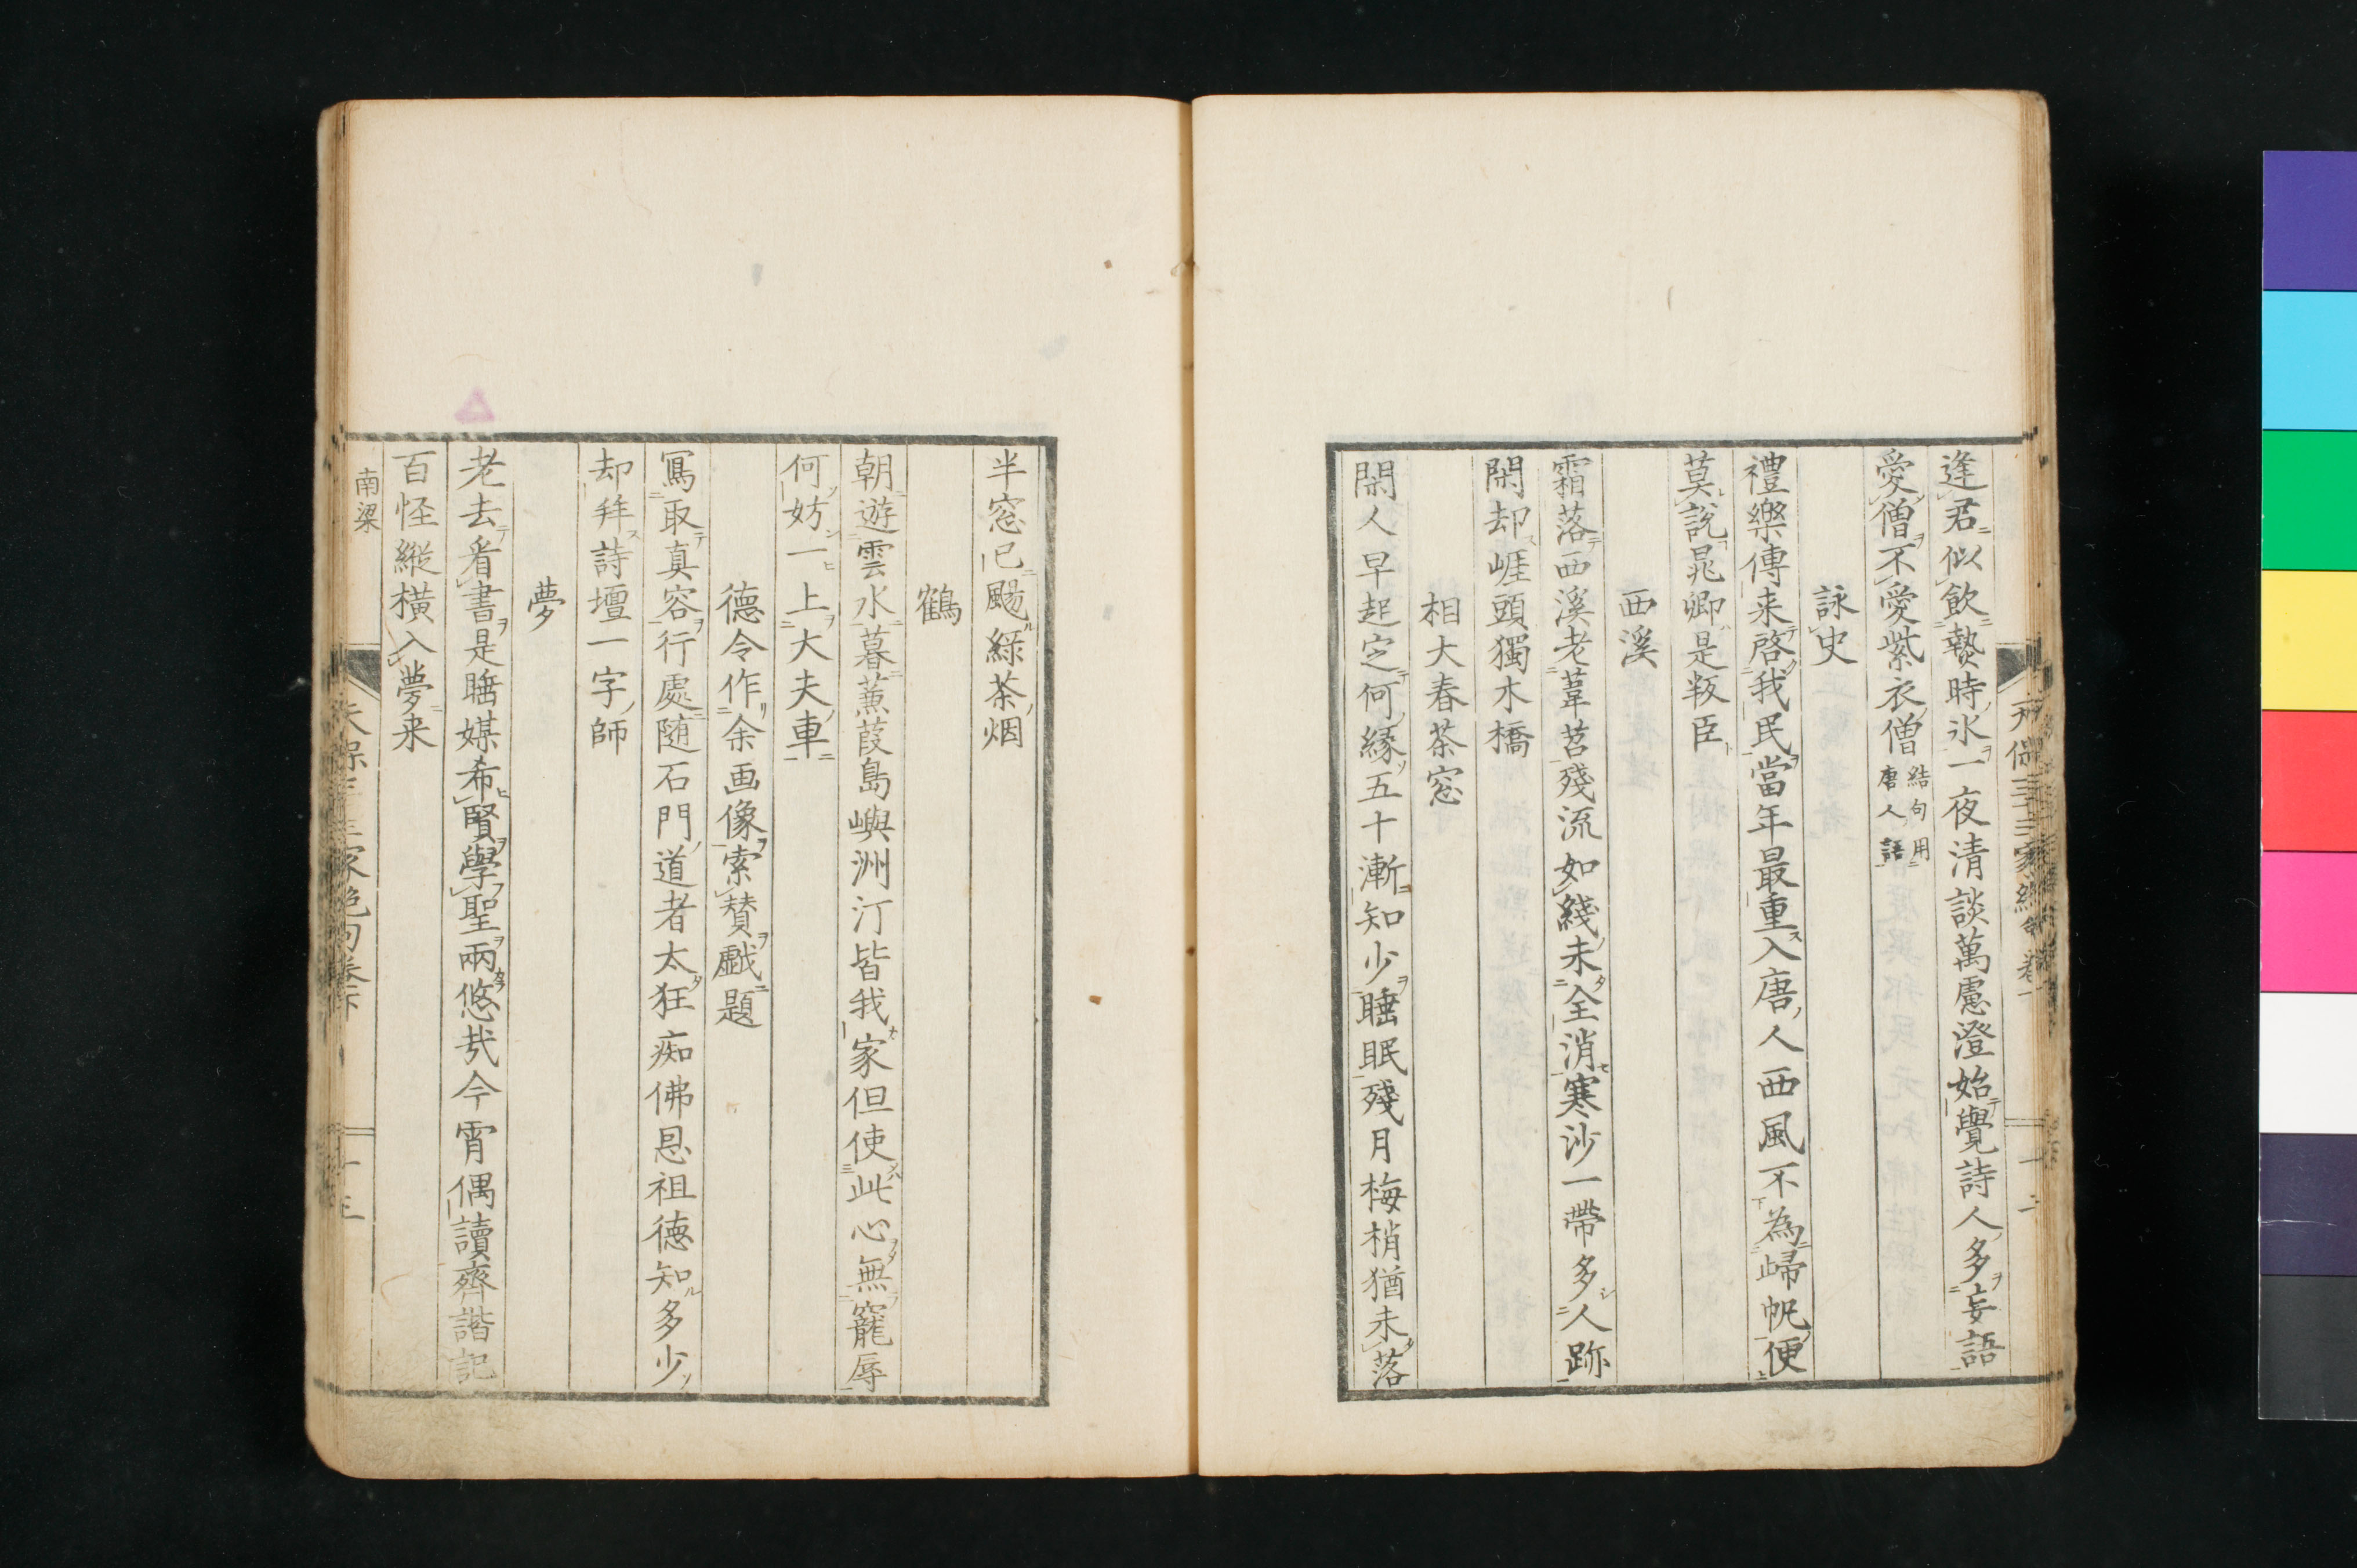 逢君似飲贄時氷一夜清談萬慮澄始覺詩人多妄語
愛僧不愛紫衣僧結句用唐人語
詠史
禮樂傳来啓我民當年最重入唐人西風不為歸帆便
莫說晁卿是叛臣
西溪
霜落西溪老葦苕殘流如綫未全消寒沙一帶多人跡
閑却崕頭獨木橋
相大春茶窓
閑人早起定何緣五十漸知少睡眠殘月梅梢猶未落
半窓已颺綠茶烟
鶴
朝遊雲水暮蒹葭島嶼洲汀皆我家但使此心無寵辱
何妨一上大夫車
德令作余画像索賛戯題
寫取真容行處随石門道者太狂痴佛恩祖德知多少
却拜詩壇一字師
夢
老去看書是睡媒希賢學聖兩悠哉今宵偶讀齊諧記
百怪縱横入夢来
南梁